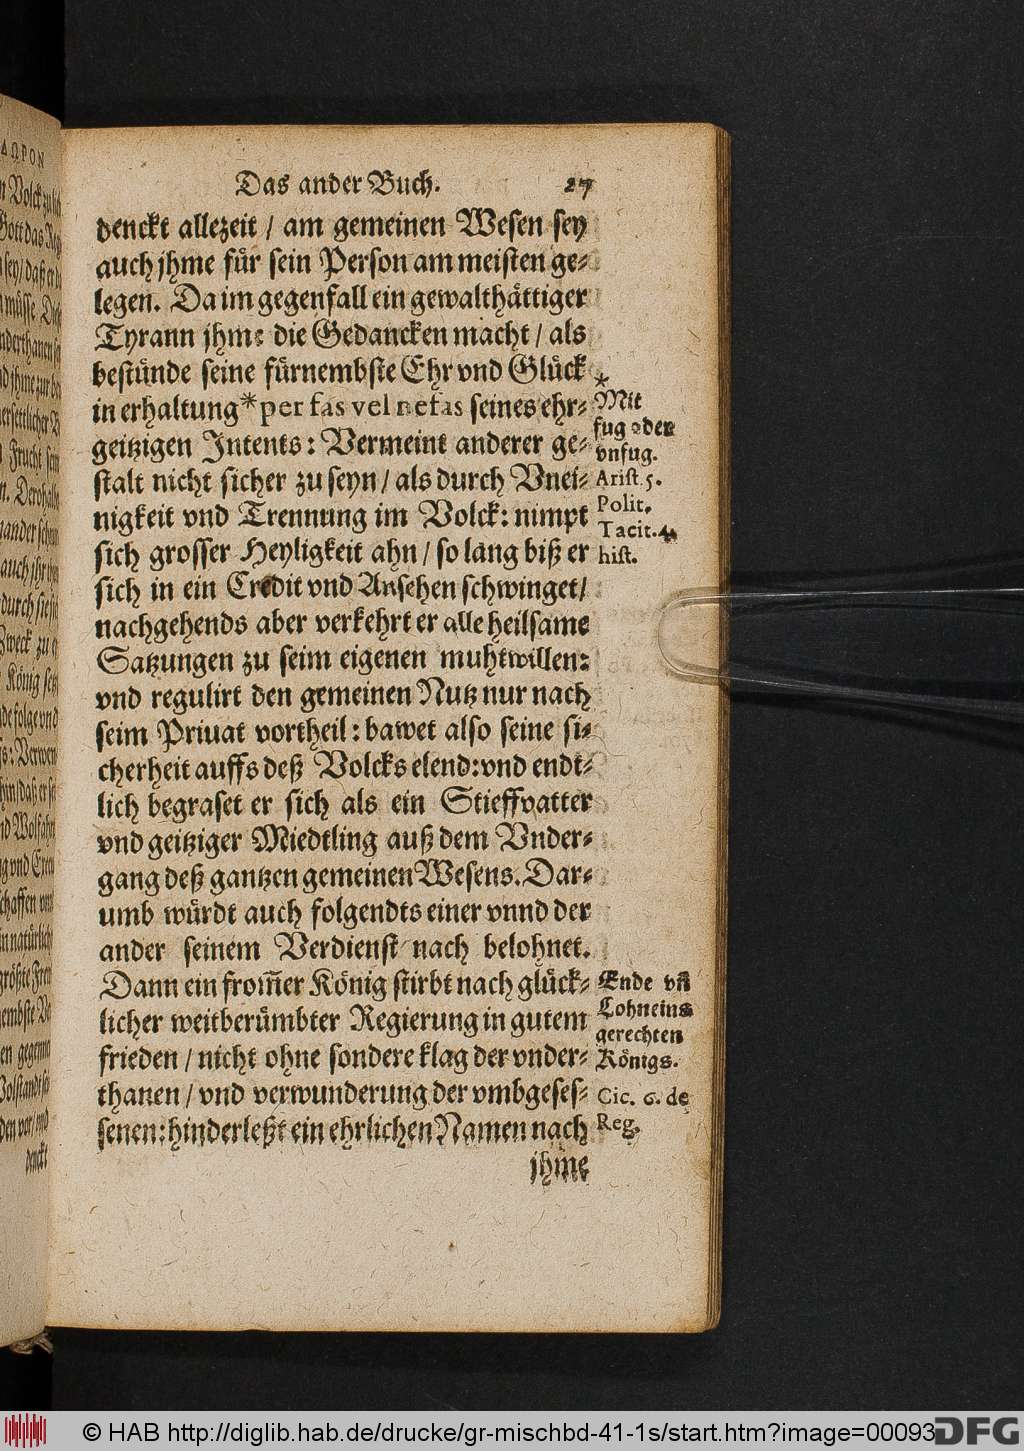 Das ander Buch. 27
denckt allezeit / am gemeinen Wesen sey
auch jhme für sein Person am meisten ge-
legen. Da im gegenfall ein gewalthättiger
Tyrann jhme die Gedancken macht / als
bestünde seine fürnembste Ehr vnd Glück
in erhaltung * per fas vel nefas seines ehr-
geitzigen Intents: Vermeint anderer ge-
stalt nicht sicher zu seyn / als durch Vnei-
nigkeit vnd Trennung im Volck: nimpt
sich grosser Heyligkeit ahn / so lang biß er
sich in ein Credit vnd Ansehen schwinget /
nachgehends aber verkehrt er alle heilsame
Satzungen zu seim eigenen muhtwillen:
vnd regulirt den gemeinen Nutz nur nach
seim Priuat vortheil: bawet also seine si-
cherheit auffs deß Volcks elend: vnd endt-
lich begraset er sich als ein Stieffvatter
vnd geitziger Miedtling auß dem Vnder-
gang deß gantzen gemeinen Wesens. Dar-
umb würdt auch folgendts einer vnnd der
ander seinem Verdienst nach belohnet.
Dann ein from̃er König stirbt nach glück-
licher weitberümbter Regierung in gutem
frieden / nicht ohne sondere klag der vnder-
thanen / vnd verwunderung der vmbgeses-
senen: hinderleßt ein ehrlichen Namen nach
jhme
*
Mit
fug oder
vnfug.
Arist. 5.
Polit.
Tacit. 4.
hist.
Ende vñ
Lohn eins
gerechten
Königs.
Cic. 6. de
Reg.
denckt
© HAB http://diglib.hab.de/drucke/gr-mischbd-41-1s/start.htm?image=00093
DFG